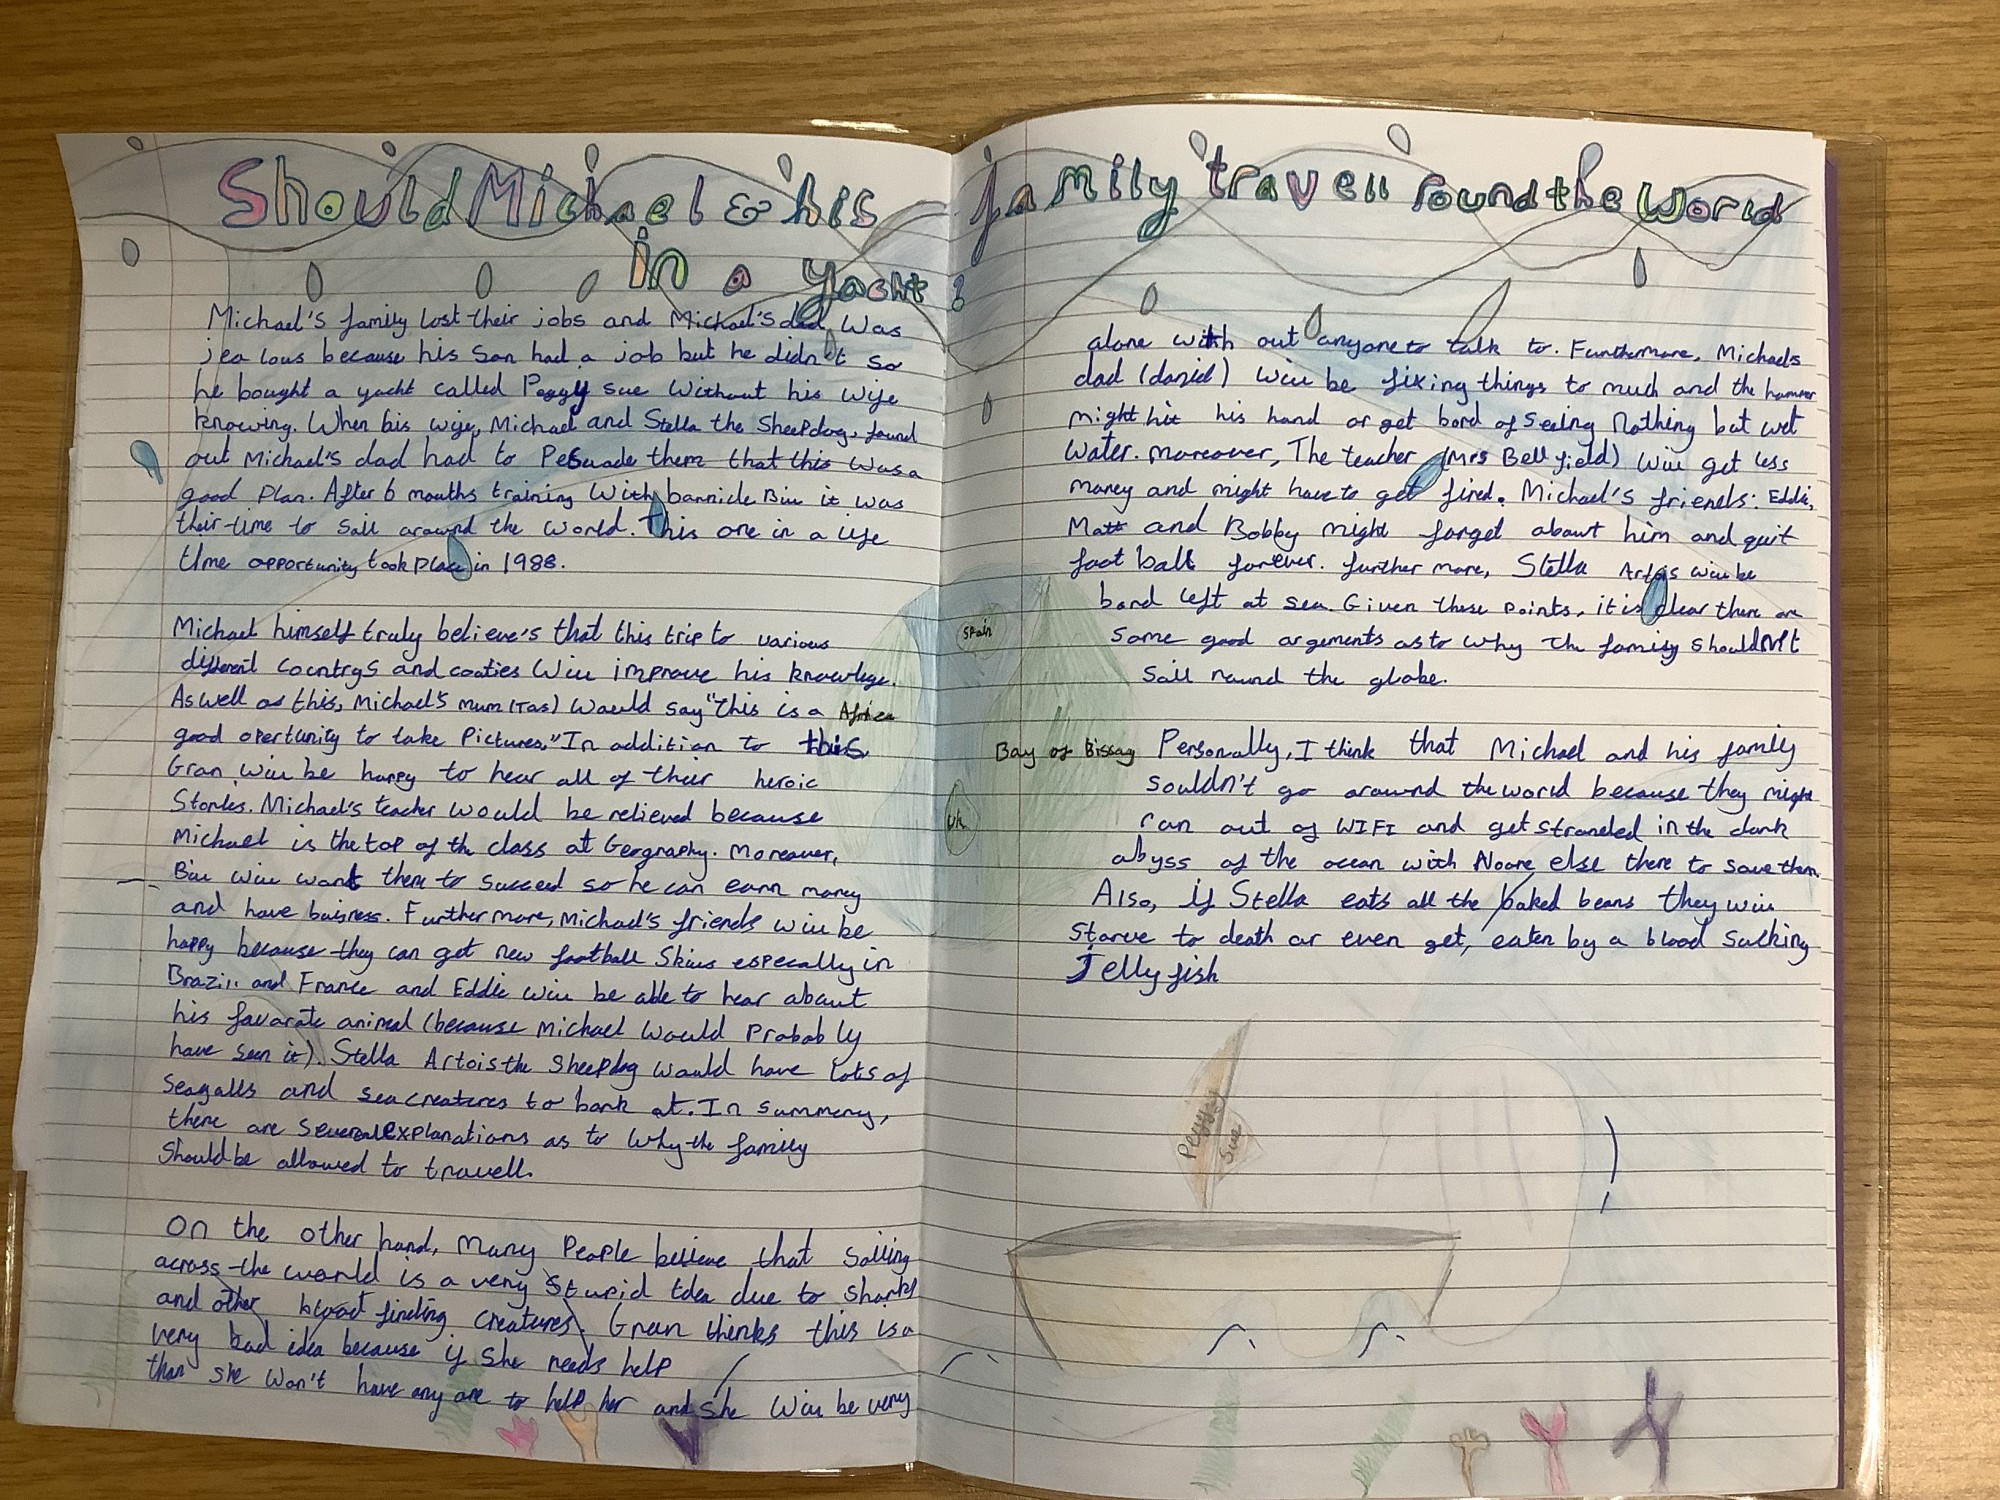 Should Michael & his family travell round the World
in a yacht?
Michael's family lost their jobs and Michael's dad was
jealous because his son had a job but he didn't so
he bought a yacht called Peggy sue without his wife
knowing. When his wife, Michael and Stella the Sheepdog, found
out Michael's dad had to Persuade them that this was a
good plan. After 6 months training with barnicle Bill it was
their time to sail around the world. This one in a life
time opportunity took place in 1988.
Michael himself truly believe's that this trip to various
different countrys and coaties will improve his knowlege.
As well as this, Michael's mum (Tas) would say "this is a
good opertunity to take pictures." In addition to this
Gran will be happy to hear all of their heroic
Stories. Michael's teacher would be relieved because
Michael is the top of the class at Gergraphy. Moreover,
Bill will want them to succeed so he can earn money
and have buisness. Furthermore, Michael's friends will be
happy because they can get new football Skills especally in
Brazil and France and Eddie will be able to hear about
his favorate animal (because Michael would probably
have seen it). Stella Artois the Sheepdog would have lots of
seagalls and sea creatures to bark at. In summery,
there are several explanations as to why the family
Should be allowed to travell.
On the other hand, Many People believe that Sailing
across the world is a very stupid Idea due to sharks
and other blood finding creatures. Gran thinks this is a
very bad idea because if She needs help
than she won't have any one to help her and she will be very
Africa
Spain
Bay of Bissay
UK
alone with out anyone to talk to. Furthermore, Michaels
dad (daniel) will be fixing things to much and the hammer
might hit his hand or get bord of seeing Nothing but wet
water. moreover, The teacher (Mrs Bellyfield) will get less
money and might have to get fired. Michael's friends: Eddie,
Matt and Bobby might forget about him and quit
foot ball forever. further more, Stella Artois will be
bord left at sea. Given these points, it is clear there are
some good argements as to why the family shouldn't
sail round the globe.
Personally, I think that Michael and his family
souldn't go around the world because they might
run out of WIFI and get stranded in the dark
abyss of the ocean with Noone else there to save them.
Also, if Stella eats all the baked beans they will
starve to death or even get, eaten by a blood sucking
Jelly fish
Peggy
Sue